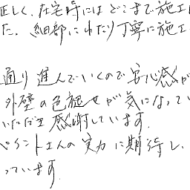 正しく、在宅時にはどこまで施工
た。細部にわたり丁寧に施工
通り進んでいくので安心感が
外壁の色褪せが気になってい
いただき感謝しています。
ペイントさんの実力に期待し、
っています。